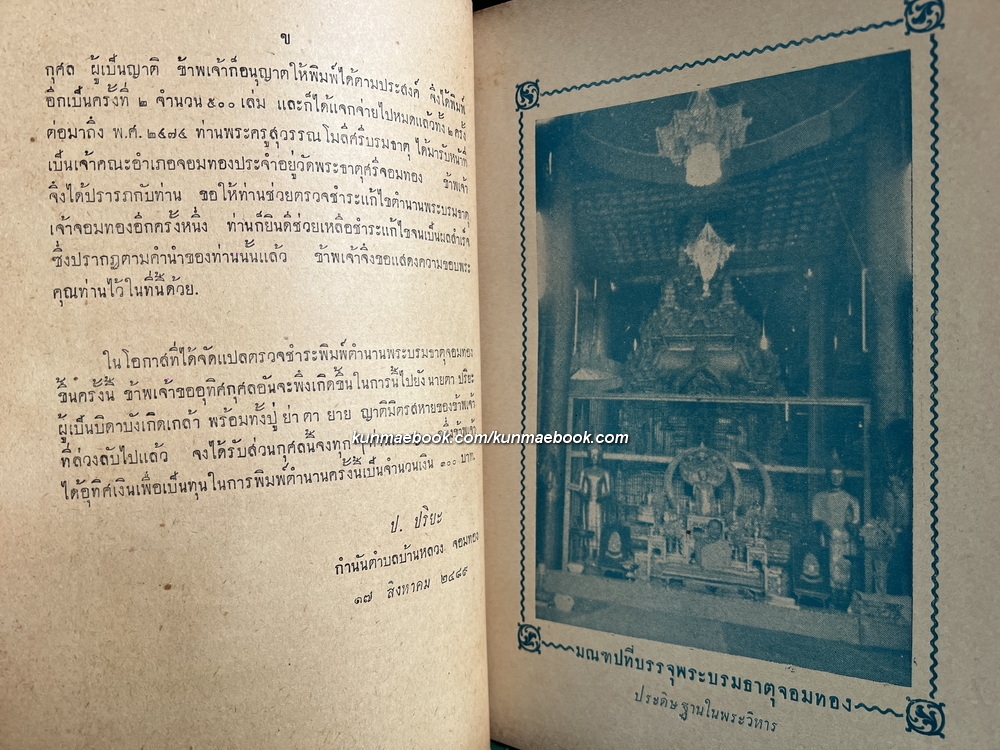 ข
กุศล ผู้เป็นญาติ ข้าพเจ้าก็อนุญาตให้พิมพ์ได้ตามประสงค์ จึงได้พิมพ์
อีกเป็นครั้งที่ ๒ จำนวน ๕๐๐ เล่ม และก็ได้แจกจ่ายไปหมดแล้วทั้ง ๒ ครั้ง
ต่อมาถึง พ.ศ. ๒๔๘๔ ท่านพระครูสุวรรณโมลีศรีบรมธาตุ ได้มารับหน้าที่
เป็นเจ้าคณะอำเภอจอมทองประจำอยู่วัดพระธาตุศรีจอมทอง ข้าพเจ้า
จึงได้ปรารภกับท่าน ขอให้ท่านช่วยตรวจชำระแก้ไขตำนานพระบรมธาตุ
เจ้าจอมทองอีกครั้งหนึ่ง ท่านก็ยินดีช่วยเหลือชำระแก้ไขจนเป็นผลสำเร็จ
ซึ่งปรากฏตามคำนำของท่านนั้นแล้ว ข้าพเจ้าจึงขอแสดงความขอบพระ
คุณท่านไว้ในที่นี้ด้วย.
ในโอกาสที่ได้จัดแปลตรวจชำระพิมพ์ตำนานพระบรมธาตุจอมทอง
ขึ้นครั้งนี้ ข้าพเจ้าขออุทิศกุศลอันจะพึงเกิดขึ้นในการนี้ไปยัง นายตา ปริยะ
ผู้เป็นบิดาบังเกิดเกล้า พร้อมทั้งปู่ ย่า ตา ยาย ญาติมิตรสหายของข้าพเจ้า
ที่ล่วงลับไปแล้ว จงได้รับส่วนกุศลนี้จงทุก ซึ่งข้าพเจ้า
ได้อุทิศเงินเพื่อเป็นทุนในการพิมพ์ตำนานครั้งนี้เป็นจำนวนเงิน ๓๐๐ บาท.
ป. ปริยะ
กำนันตำบลบ้านหลวง จอมทอง
๑๗ สิงหาคม ๒๔๘๙
kuhmaebook.com/kunmaebook.com
มณฑปที่บรรจุพระบรมธาตุจอมทอง
ประดิษฐานในพระวิหาร